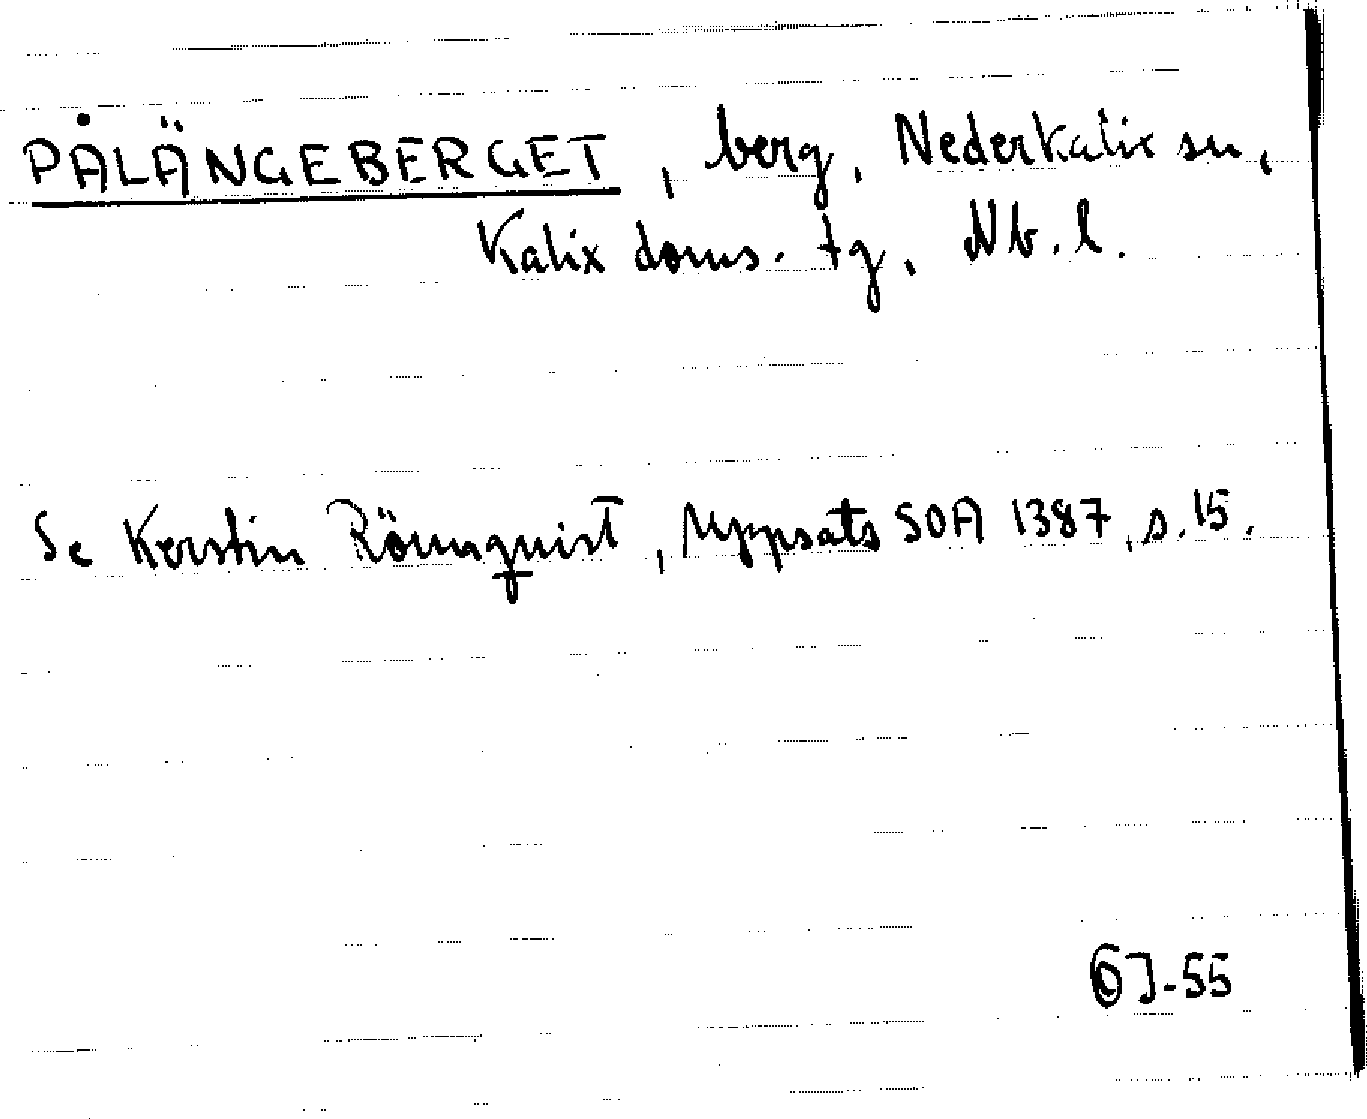 PÅLÄNGEBERGET, berg, Nederkalix sn,
Kalix doms. tg, Nb. l.
Se Kerstin Rönnquist, Uppsats SOA 1387, s. 15.
J-55